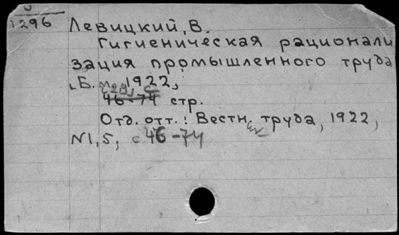 1296
Левицкий, В.
Гигиеническая рационали
зация промышленного труда
Б. м., 1922,
46-74 стр.
Отд. отт.: Вестн. труда, 1922,
№1,5, с 46-74